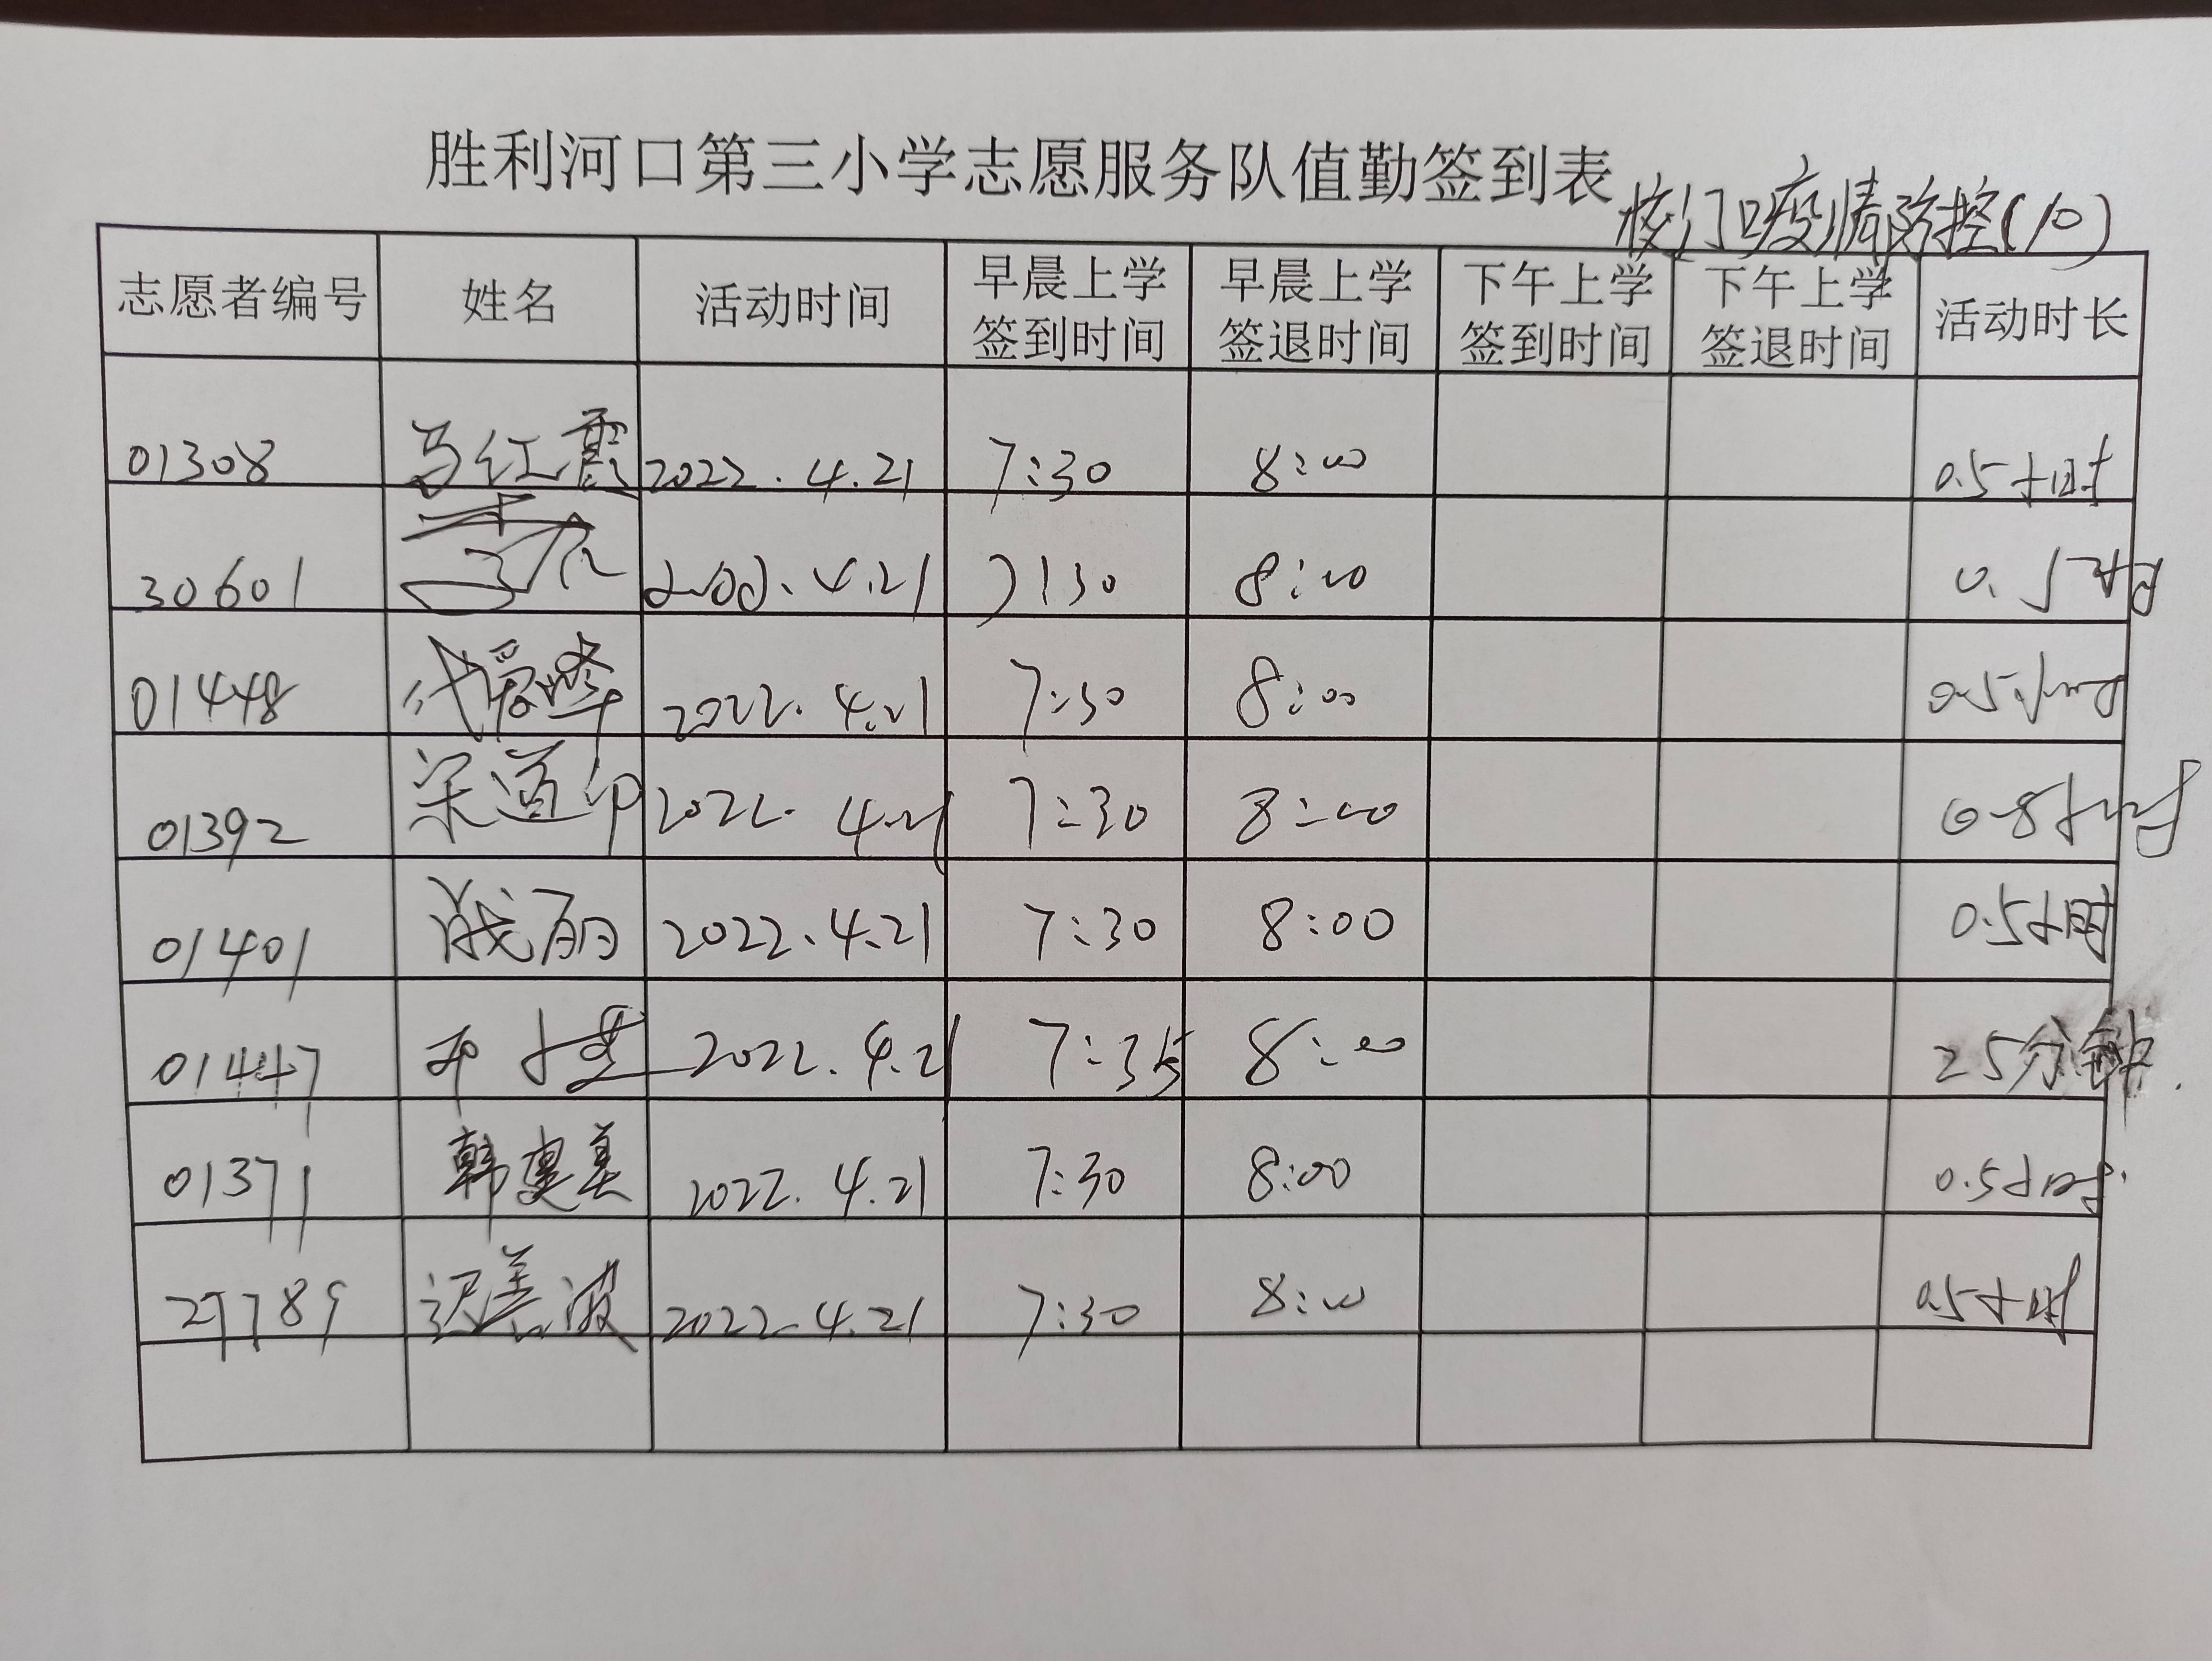 胜利河口第三小学志愿服务队值勤签到表
校门口疫情防控(10)
志愿者编号 姓名 活动时间 早晨上学签到时间 早晨上学签退时间 下午上学签到时间 下午上学签退时间 活动时长
01308 马红霞 2022.4.21 7:30 8:00 0.5小时
30601 2022.4.21 7:30 8:00 0.5小时
01448 代爱峰 2022.4.21 7:30 8:00 0.5小时
01392 宋道印 2022. 4.21 7:30 8:00 0.8小时
01401 战丽 2022.4.21 7:30 8:00 0.5小时
01447 2022.4.21 7:35 8:00 25分钟.
01371 韩奥美 2022.4.21 7:30 8:00 0.5小时.
27789 迟美波 2022.4.21 7:30 8:00 0.5小时